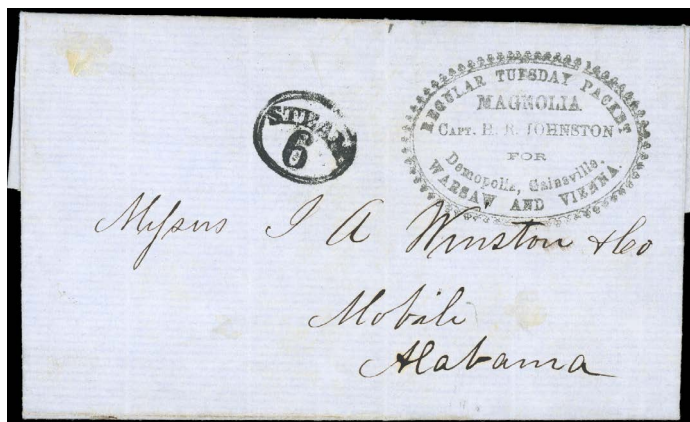 REGULAR TUESDAY PACKET
MAGNOLIA
CAPT. H. R. JOHNSTON
FOR
Demopolis, Gainsville,
WARSAW AND VIENNA.
STEAM
6
Messrs J A Winston & Co
Mobile
Alabama